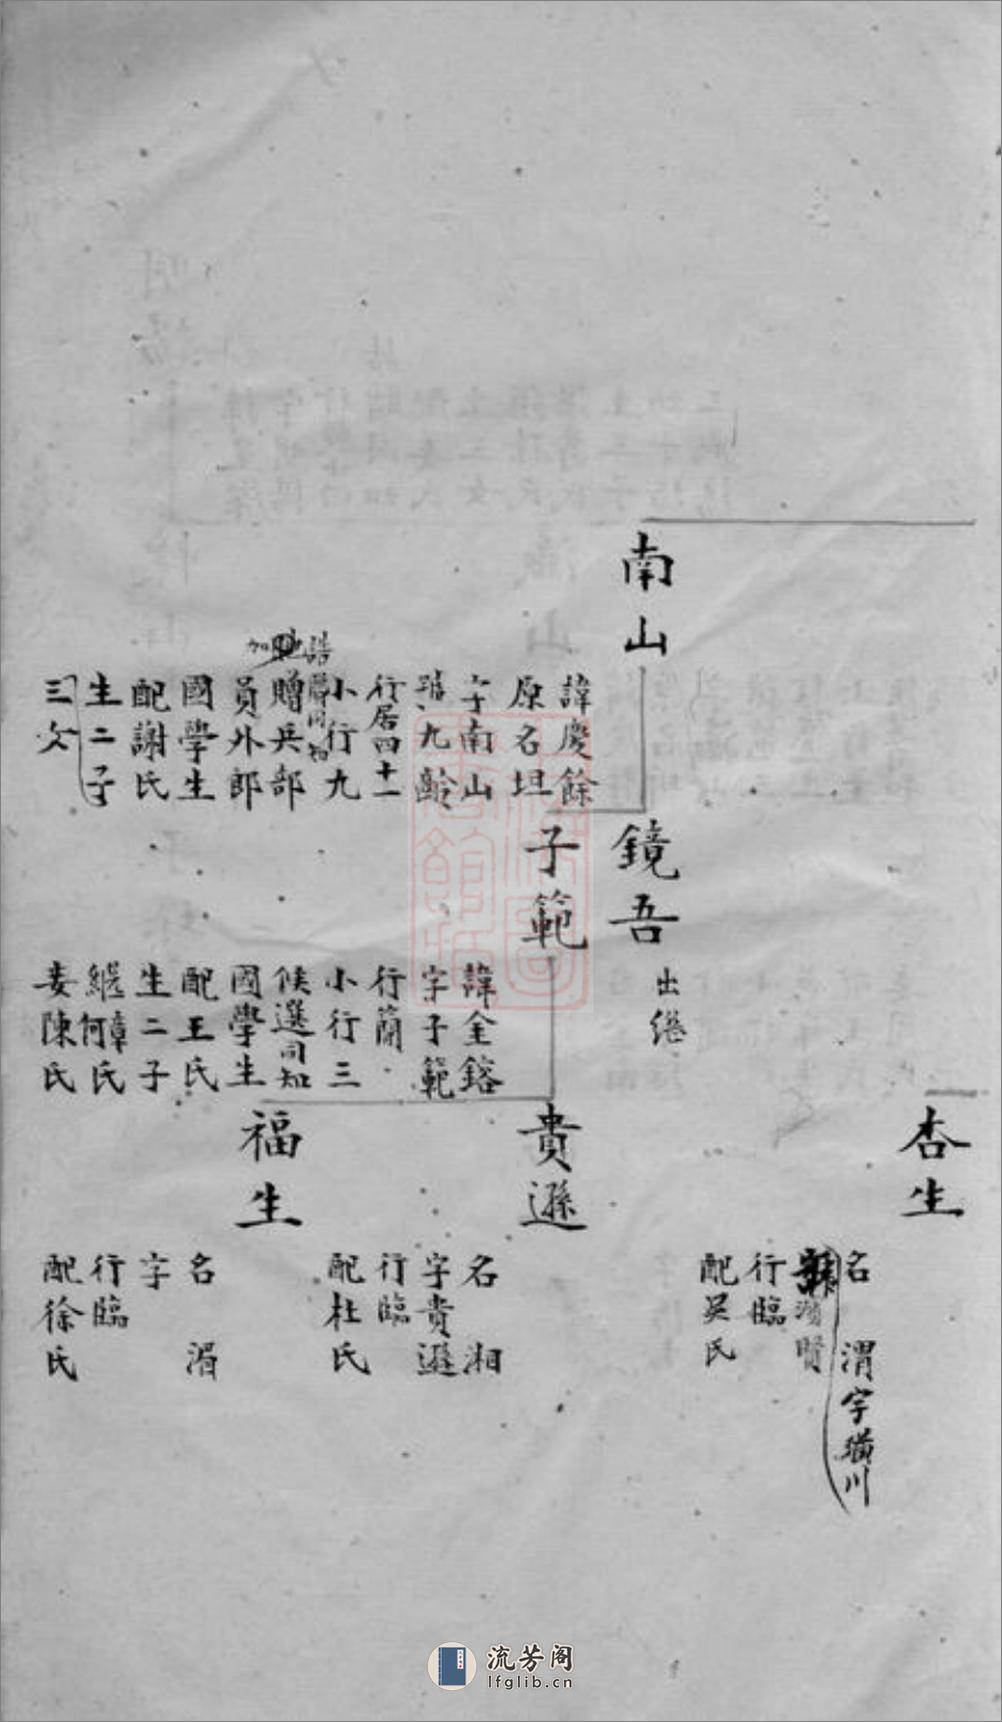 南山
諱慶餘
原名坦
字南山
號九齡
行居四十一
小行九
誥
贈兵部
加
員外郎
國學生
配謝氏
生二子
三女
鏡吾
出繼
子範
諱金鎔
字子範
行蘭
小行三
候選同知
國學生
配王氏
生二子
繼何氏
妾陳氏
杏生
名 渭字璜川
行臨
配吳氏
貴遜
名 湘
字貴遜
行臨
配杜氏
福生
名 湄
字
行臨
配徐氏
流芳阁
lfglib.cn